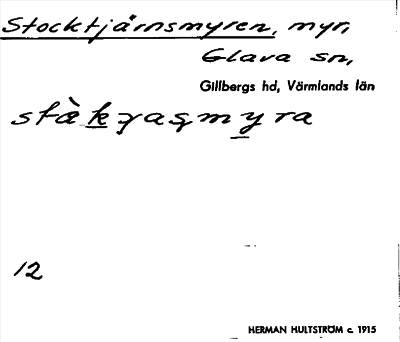 Stocktjärnsmyren, myr,
Glava sn,
Gillbergs hd, Värmlands län
12
HERMAN HULTSTRÖM c. 1915